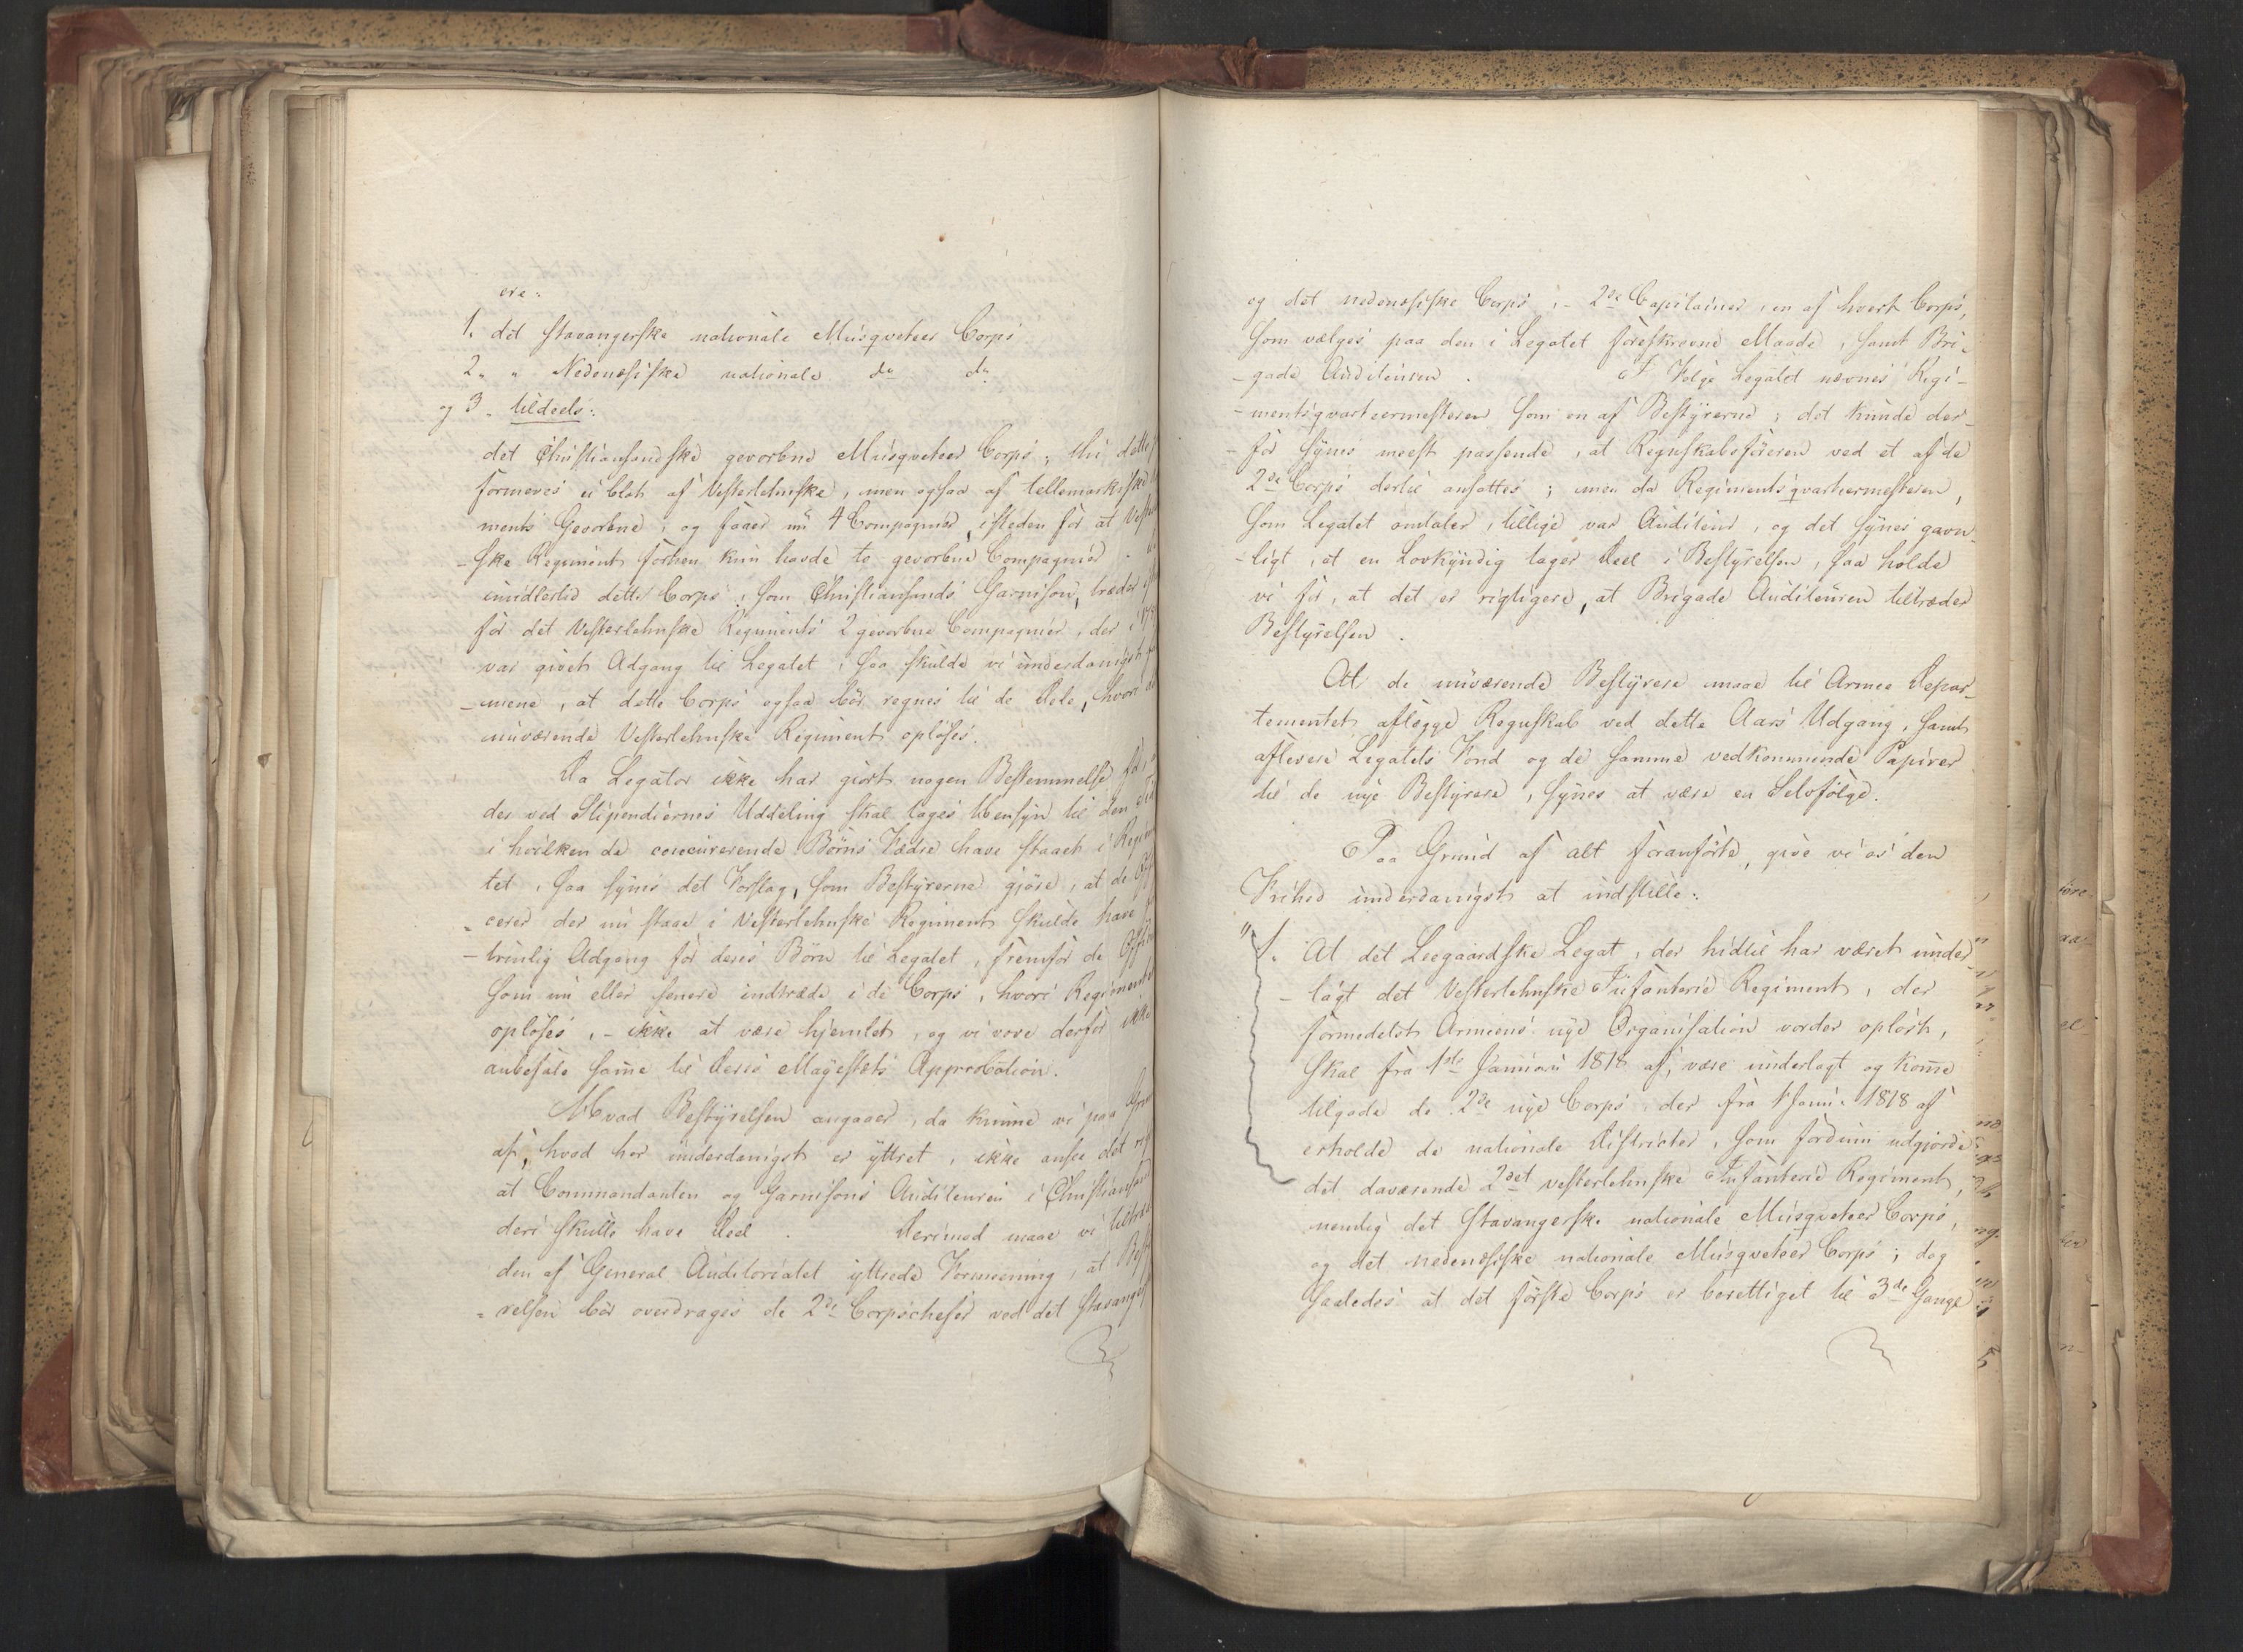 ere:
1. det stavangerske nationale Musqveteer Corps
2. " Nedenæsiske nationale do do
og 3. tildeels:
det Christiansandske gevorbne Musqveteer Corps; thi dette
formeres ei blot af Vesterlehnske, men ogsaa af tellemarkiske
ments Gevorbne, og faaer nu 4 Compagnier, isteden for at
-ske Regiment forhen kun havde to gevorbne Compagnier.
imidlertid dette Corps, som Christiansands Garnison, træder
for det Vesterlehnske Regiments 2 gevorbne Compagnier, der i
var givet Adgang til Legatet, saa skulde vi underdanigst
-mene, at dette Corps ogsaa bör regnes til de Dele, hvori
nuværende Vesterlehnske Regiment oplöses.
Da Legator ikke har giort nogen Bestemmelse for,
der ved Stipendiernes Uddeling skal tages Hensyn til den
i hvilken de concurrerende Börns Fædre have staaet i
tet, saa synes det Forslag, som Bestyrerne gjöre, at de
-cerer der nu staae i Vesterlehnske Regiment skulde have
-trinlig Adgang for deres Börn til Legatet, fremfor de
som nu eller senere indtræde i de Corps, hvori Regimentet
oplöses, - ikke at være hjemlet, og vi vove derfor ikke
anbefale samme til Deres Majestæts Approbation.
Hvad Bestyrelsen angaaer, da kunne vi paa
af, hvad her underdanigst er yttret, ikke ansee det
at Commandanten og Garnisons Auditeuren i Christiansand
deri skulle have Deel. Derimod maae vi
den af General Auditoriatet yttrede Formening, at
-relsen bör overdrages de 2de Corpschefer ved det
og det nedenæsiske Corps, - 2de Capitainer, en af hvert Corps,
som vælges paa den i Legatet foreskrevne Maade, samt Bri-
-gade Auditeuren. I Fölge Legatet nævnes Regi-
-mentsqvarteermesteren som en af Bestyrerne; det kunde der-
-for synes meest passende, at Regnskabsföreren ved et af de
2de Corps dertil ansattes; men da Regimentsqvarteermesteren,
som Legatet omtaler, tillige var Auditeur, og det synes gavn-
-ligt, at en Lovkyndig tager Deel i Bestyrelsen, saa holde
vi for, at det er rigtigere, at Brigade Auditeuren tiltræder
Bestyrelsen.
At de nuværende Bestyrere maae til Armee Depar-
tementet aflægge Regnskab ved dette Aars Udgang, samt
aflevere Legatets Fond og de samme vedkommende Papirer
til de nye Bestyrere, synes at være en Selvfölge.
Paa Grund af alt foranförte, give vi os den
Frihed underdanigst at indstille:
"1. At det Leegaardske Legat, der hidtil har været under-
-lagt det Vesterlehnske Infanterie Regiment, der
formedelst Armeens nye Organisation vorder oplöst,
skal fra 1ste Januari 1818 af, være underlagt og komme
tilgode de 2de nye Corps, der fra 1 Janu: 1818 af
erholde de nationale Districter, som fordum udgjorde
det daværende 2det vesterlehnske Infanterie Regiment,
nemlig det stavangerske nationale Musqveteer Corps,
og det nedenæsiske nationale Musqveteer Corps; dog
saaledes at det förste Corps er berettiget til 3de Gange